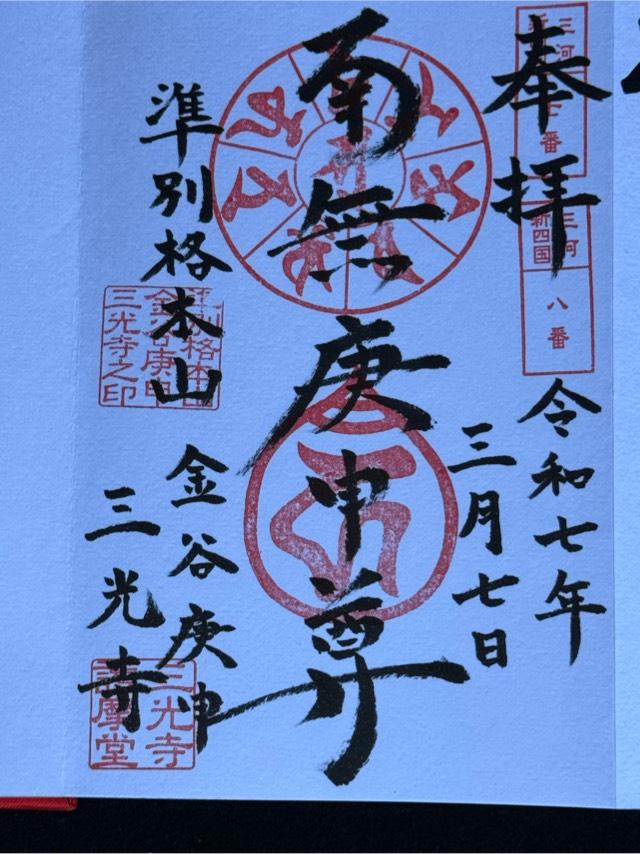 奉拝
三河
七番
三河
新四国
八番
令和七年
三月七日
南無庚申尊
準別格本山
金谷庚申
三光寺
準別格本山
金谷庚申
三光寺之印
三光寺
護摩堂